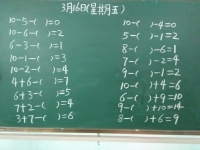 3月6日(星期五)
10-5-( )=0
10-6-( )=2
6-3-( )=1
10-1-( )=3
10-2-( )=4
4+6-( )=7
5+5-( )=5
7+2-( )=4
3+7-( )=6
10-( )-4=0
5-( )-1=2
8-( )-6=1
7-( )-2=4
9-( )-1=2
10-( )+4=6
6-( )+9=10
9-( )+10=14
8-( )+6=9